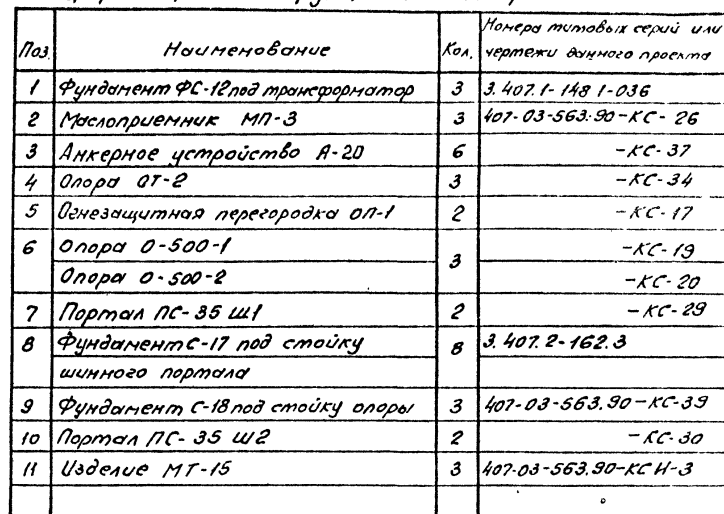 Поз.
Наименование
Кол.
Номера типовых серий или
чертежи данного проекта
1 Фундамент ФС-12 под трансформатор 3 3.407.1-148 1-036
2 Маслоприемник МП-3 3 407-03-563.90-КС-26
3 Анкерное устройство А-20 6 -КС-37
4 Опора ОТ-2 3 -КС-34
5 Огнезащитная перегородка ОП-1 2 -КС-17
6 Опора О-500-1 3 -КС-19
Опора О-500-2 -КС-20
7 Портал ПС-35 Ш1 2 -КС-29
8 Фундамент С-17 под стойку 8 3.407.2-162.3
шинного портала
9 Фундамент С-18 под стойку опоры 3 407-03-563.90-КС-39
10 Портал ПС-35 Ш2 2 -КС-30
11 Изделие МТ-15 3 407-03-563.90-КСИ-3